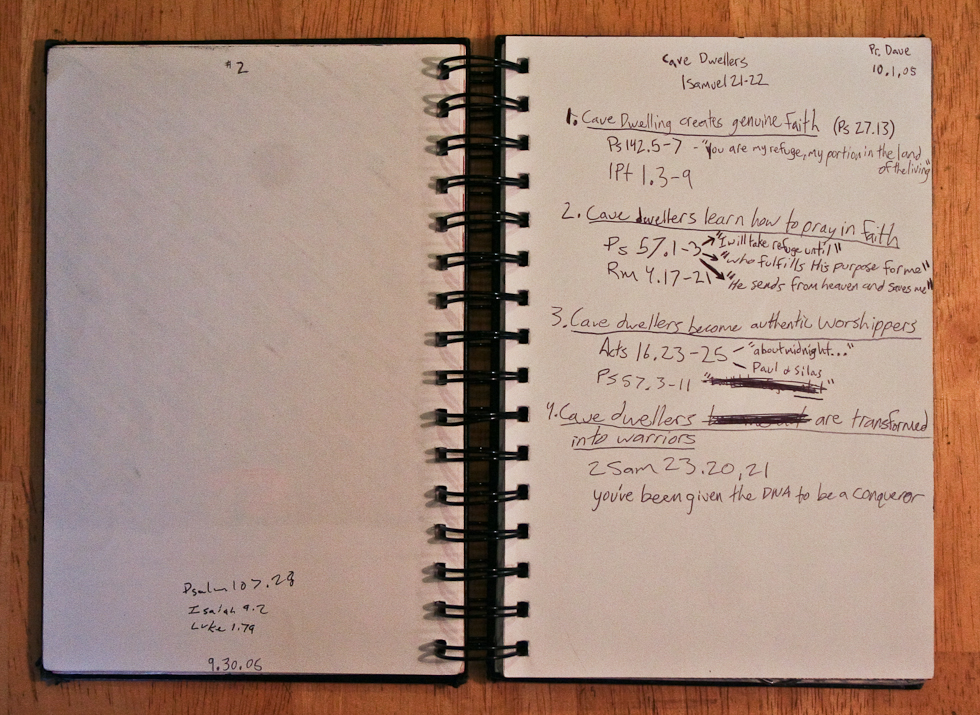 #2
Psalm 107.28
Isaiah 9.2
Luke 1.79
9.30.06
Pr. Dave
10.1.05
Cave Dwellers
1 Samuel 21-22
1. Cave Dwelling creates genuine faith (Ps 27.13)
Ps 142.5-7 - "You are my refuge, my portion in the land
of the living"
1Pt 1.3-9
2. Cave dwellers learn how to pray in faith
Ps 57.1-3 "I will take refuge until"
"who fulfills His purpose for me"
Rm 4.17-21 "He sends from heaven and saves me"
3. Cave dwellers become authentic worshippers
Acts 16.23-25 - "about midnight..."
- Paul & Silas
Ps 57.3-11
4. Cave dwellers are transformed
into warriors
2 Sam 23.20,21
you've been given the DNA to be a conqueror